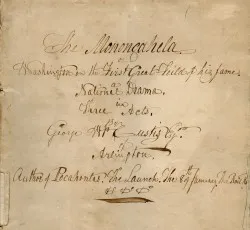 The Monongahela
or
Washington on the First Great Field of his Fame
National Drama
in
Three Acts.
by
George Custis Esqr
Arlington.
Author of Pocahontas, The Launch, The 8th January,
&c &c &c